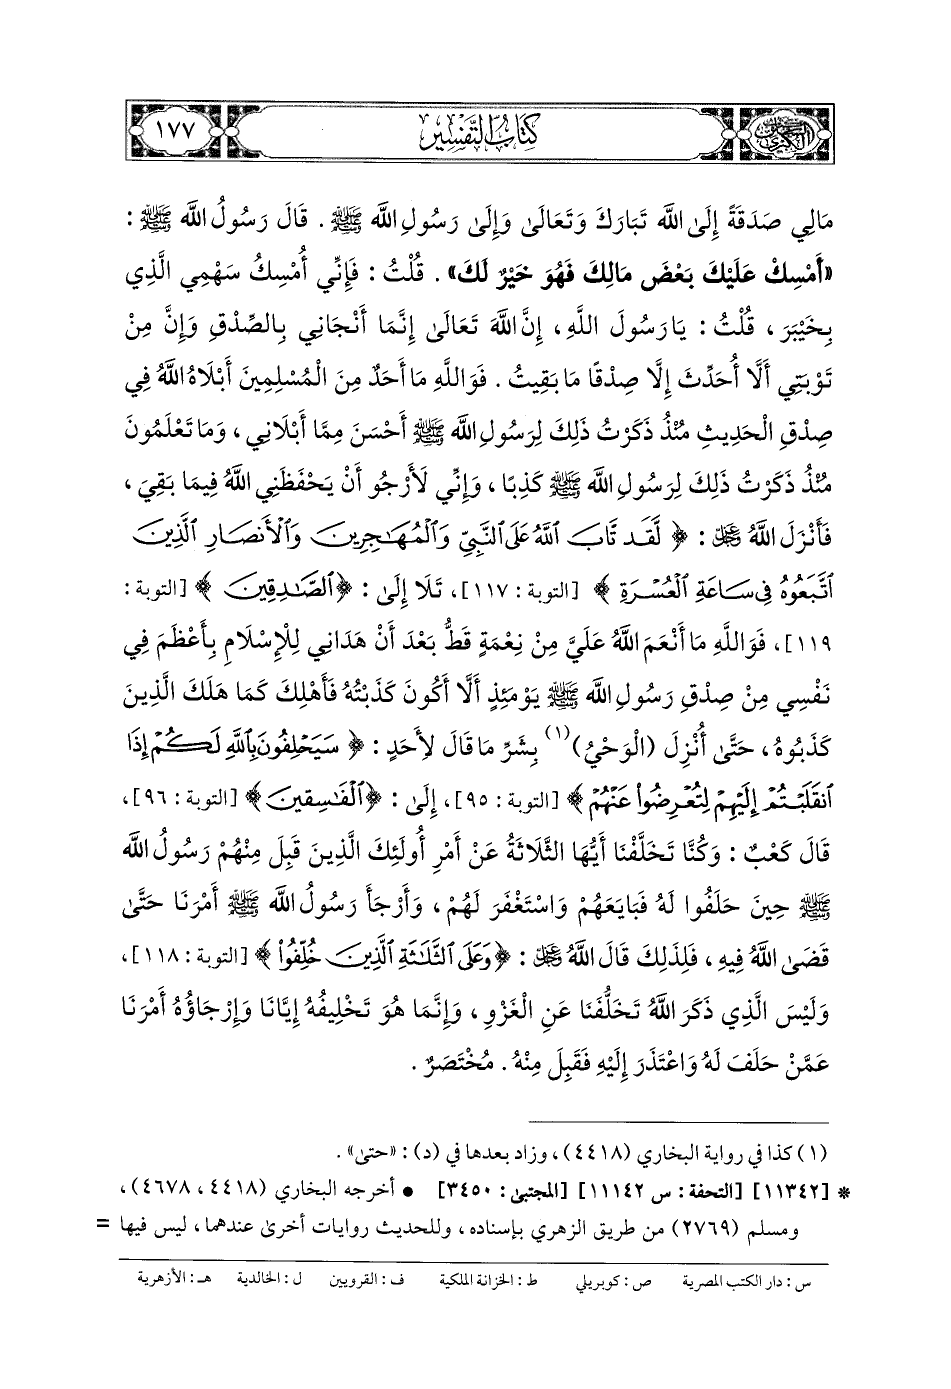 كتاب التفسير
١٧٧
مَالِي صَدَقَةً إِلَى اللَّه تَبَارَكَ وَتَعَالَى وَإِلَى رَسُولِ اللَّه ﷺ . قَالَ رَسُولُ اللَّه ﷺ :
«أَمْسِكْ عَلَيْكَ بَعْضَ مَالِكَ فَهُوَ خَيْرٌ لَكَ» . قُلْتُ : فَإِنِّي أُمْسِكُ سَهْمِي الَّذِي
بِخَيْبَرَ ، قُلْتُ : يَا رَسُولَ اللَّهِ ، إِنَّ اللَّهَ تَعَالَى إِنَّمَا أَنْجَانِي بِالصِّدْقِ وَإِنَّ مِنْ
تَوْبَتِي أَلَّا أُحَدِّثَ إِلَّا صِدْقًا مَا بَقِيتُ . فَوَاللَّهِ مَا أَحَدٌ مِنَ الْمُسْلِمِينَ أَبْلَاهُ اللَّهُ فِي
صِدْقِ الْحَدِيثِ مُنْذُ ذَكَرْتُ ذَلِكَ لِرَسُولِ اللَّه ﷺ أَحْسَنَ مِمَّا أَبْلَانِي ، وَمَا تَعْلَمُونَ
مُنْذُ ذَكَرْتُ ذَلِكَ لِرَسُولِ اللَّه ﷺ كَذِبًا ، وَإِنِّي لَأَرْجُو أَنْ يَحْفَظَنِي اللَّهُ فِيمَا بَقِيَ ،
فَأَنْزَلَ اللَّهُ ﷻ : ﴿ لَّقَد تَّابَ ٱللَّهُ عَلَى ٱلنَّبِيِّ وَٱلْمُهَٰجِرِينَ وَٱلْأَنصَارِ ٱلَّذِينَ
ٱتَّبَعُوهُ فِي سَاعَةِ ٱلْعُسْرَةِ ﴾ [التوبة : ١١٧]، تَلَا إِلَى : ﴿ٱلصَّٰدِقِينَ ﴾ [التوبة :
١١٩]، فَوَاللَّهِ مَا أَنْعَمَ اللَّهُ عَلَيَّ مِنْ نِعْمَةٍ قَطُّ بَعْدَ أَنْ هَدَانِي لِلْإِسْلَامِ بِأَعْظَمَ فِي
نَفْسِي مِنْ صِدْقِ رَسُولِ اللَّه ﷺ يَوْمَئِذٍ أَلَّا أَكُونَ كَذَبْتُهُ فَأَهْلِكَ كَمَا هَلَكَ الَّذِينَ
كَذَبُوهُ ، حَتَّى أُنْزِلَ (الْوَحْيُ)(١) بِشَرِّ مَا قَالَ لِأَحَدٍ : ﴿ سَيَحْلِفُونَ بِٱللَّهِ لَكُمْ إِذَا
ٱنقَلَبْتُمْ إِلَيْهِمْ لِتُعْرِضُوا۟ عَنْهُمْ ﴾ [التوبة : ٩٥]، إِلَى : ﴿ٱلْفَٰسِقِينَ﴾ [التوبة : ٩٦]،
قَالَ كَعْبٌ : وَكُنَّا تَخَلَّفْنَا أَيُّهَا الثَّلَاثَةُ عَنْ أَمْرِ أُولَئِكَ الَّذِينَ قَبِلَ مِنْهُمْ رَسُولُ اللَّه
ﷺ حِينَ حَلَفُوا لَهُ فَبَايَعَهُمْ وَاسْتَغْفَرَ لَهُمْ ، وَأَرْجَأَ رَسُولُ اللَّه ﷺ أَمْرَنَا حَتَّى
قَضَى اللَّهُ فِيهِ ، فَلِذَلِكَ قَالَ اللَّهُ ﷻ : ﴿وَعَلَى ٱلثَّلَٰثَةِ ٱلَّذِينَ خُلِّفُوا۟﴾ [التوبة : ١١٨]،
وَلَيْسَ الَّذِي ذَكَرَ اللَّهُ تَخَلُّفَنَا عَنِ الْغَزْوِ ، وَإِنَّمَا هُوَ تَخْلِيفُهُ إِيَّانَا وَإِرْجَاؤُهُ أَمْرَنَا
عَمَّنْ حَلَفَ لَهُ وَاعْتَذَرَ إِلَيْهِ فَقَبِلَ مِنْهُ . مُخْتَصَرٌ .
(١) كذا في رواية البخاري (٤٤١٨)، وزاد بعدها في (د) : «حتى» .
* [١١٣٤٢] [التحفة : س ١١١٤٢] [المجتبى : ٣٤٥٠] • أخرجه البخاري (٤٤١٨ ، ٤٦٧٨)،
ومسلم (٢٧٦٩) من طريق الزهري بإسناده ، وللحديث روايات أخرى عندهما ، ليس فيها =
س : دار الكتب المصرية ص : كوبريلي ط : الخزانة الملكية ف : القرويين ل : الخالدية هـ : الأزهرية